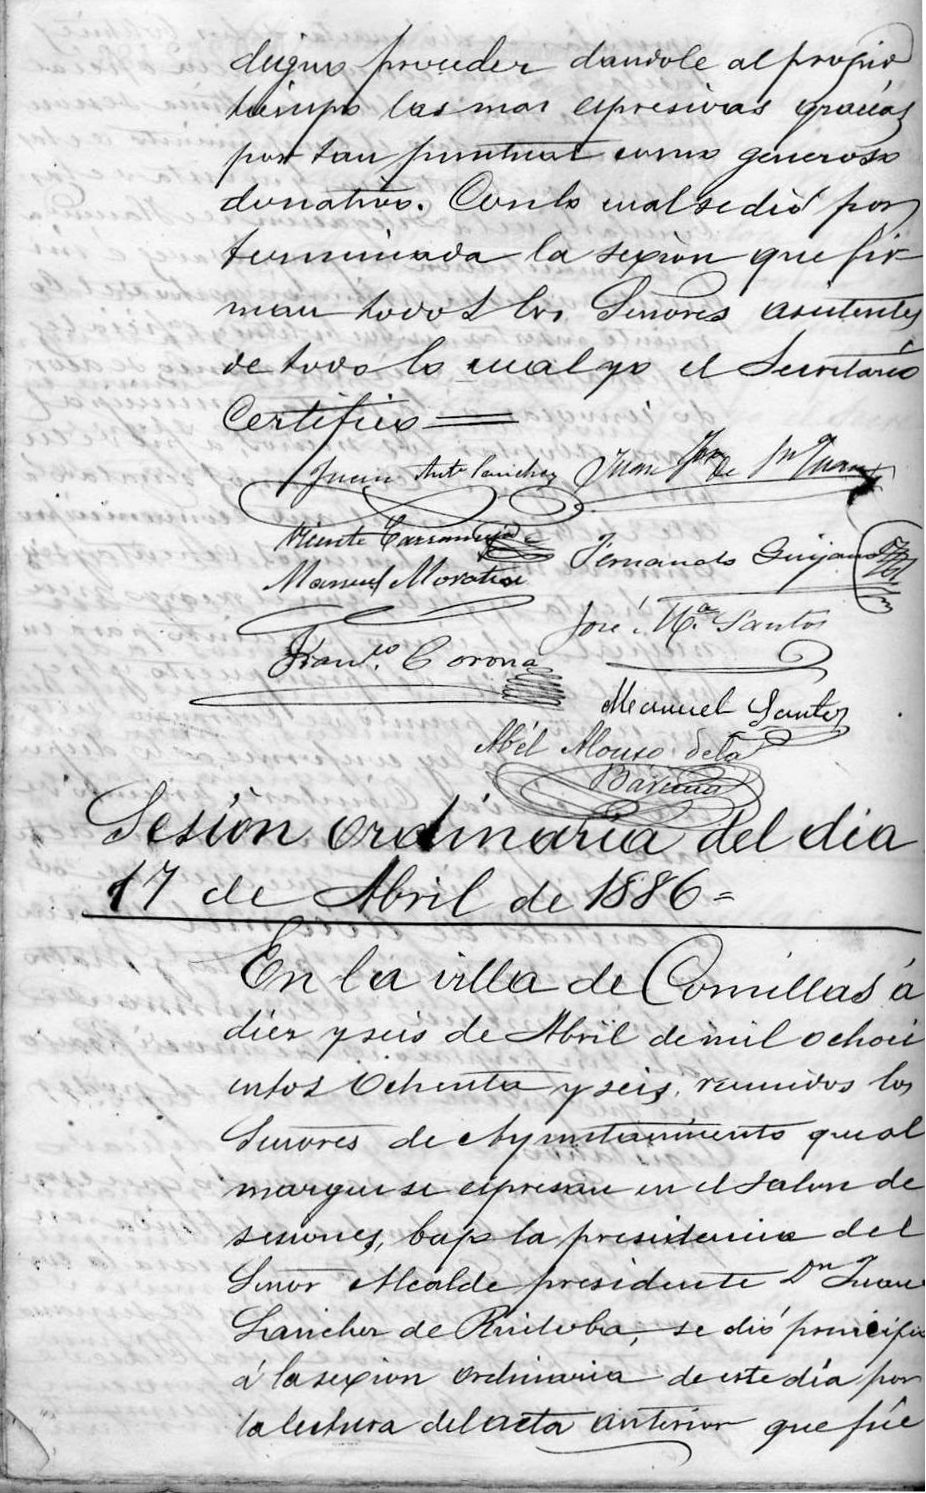 digno proceder dandole al propio
tiempo las mas espresivas gracias
por tan puntual como generoso
donativo. Con lo cual se dió por
terminada la sexion que fir-
man todos los Señores asistentes
de todo lo cual yo el Secretario
Certifico =
Juan Ant.º Sanchez Juan de Sn Juan
Vicente
Fernando Quijano
Manuel
José M.ª Santos
Fran.co Corona
Manuel Santos
Abél Alonso de la
Bárcena
Sesión ordinaria del dia
17 de Abril de 1886=
En la villa de Comillas á
diez y seis de Abril de mil ochoci
entos ochenta y seis, reunidos los
Señores de Ayuntamiento que al
margen se espresan en el salon de
sesiones, bajo la presidencia del
Señor Alcalde presidente Dn Juan
Sanchez de Ruiloba, se dió principio
á la sexion ordinaria de este día por
la lectura del acta anterior que fúe